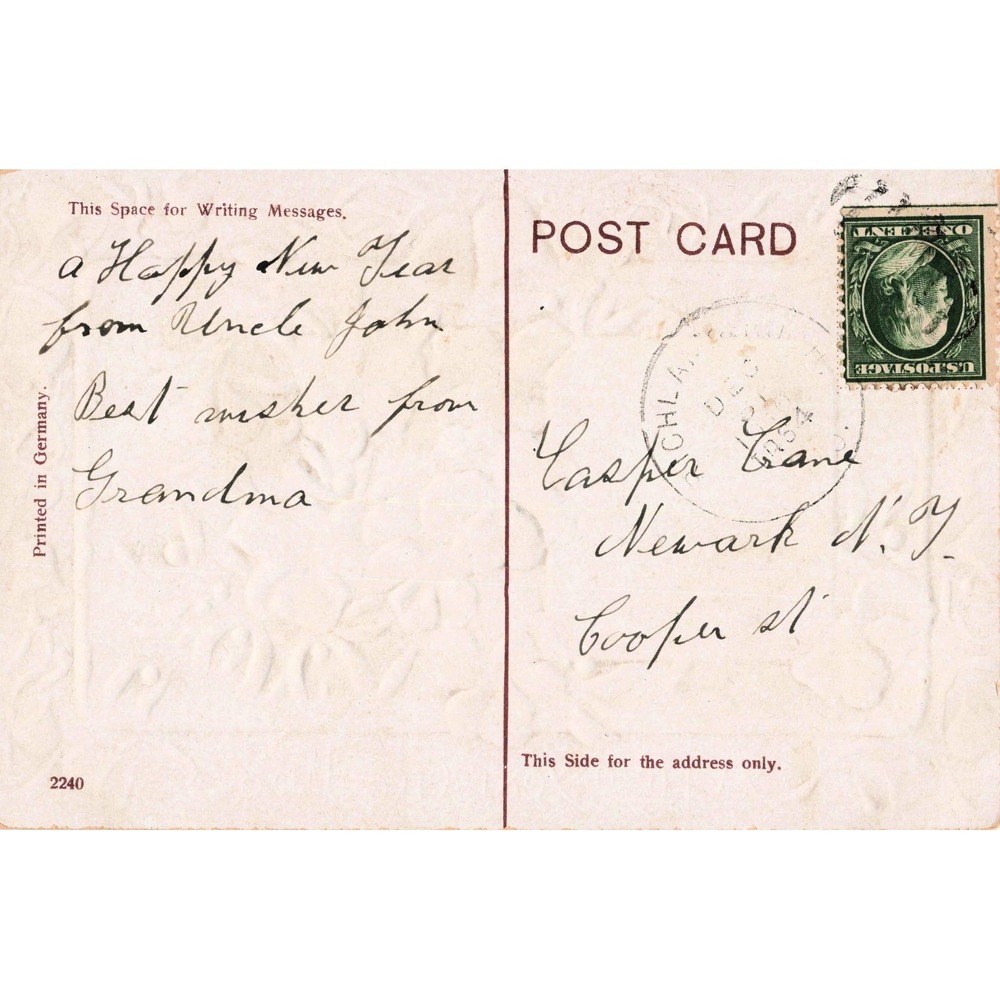 This Space for Writing Messages.
a Happy New Year
from Uncle John
Best wishes from
Grandma
Printed in Germany.
2240
POST CARD
ONE CENT
U.S. POSTAGE
DEC
Casper Crane
Newark N.Y.
Cooper st
This Side for the address only.